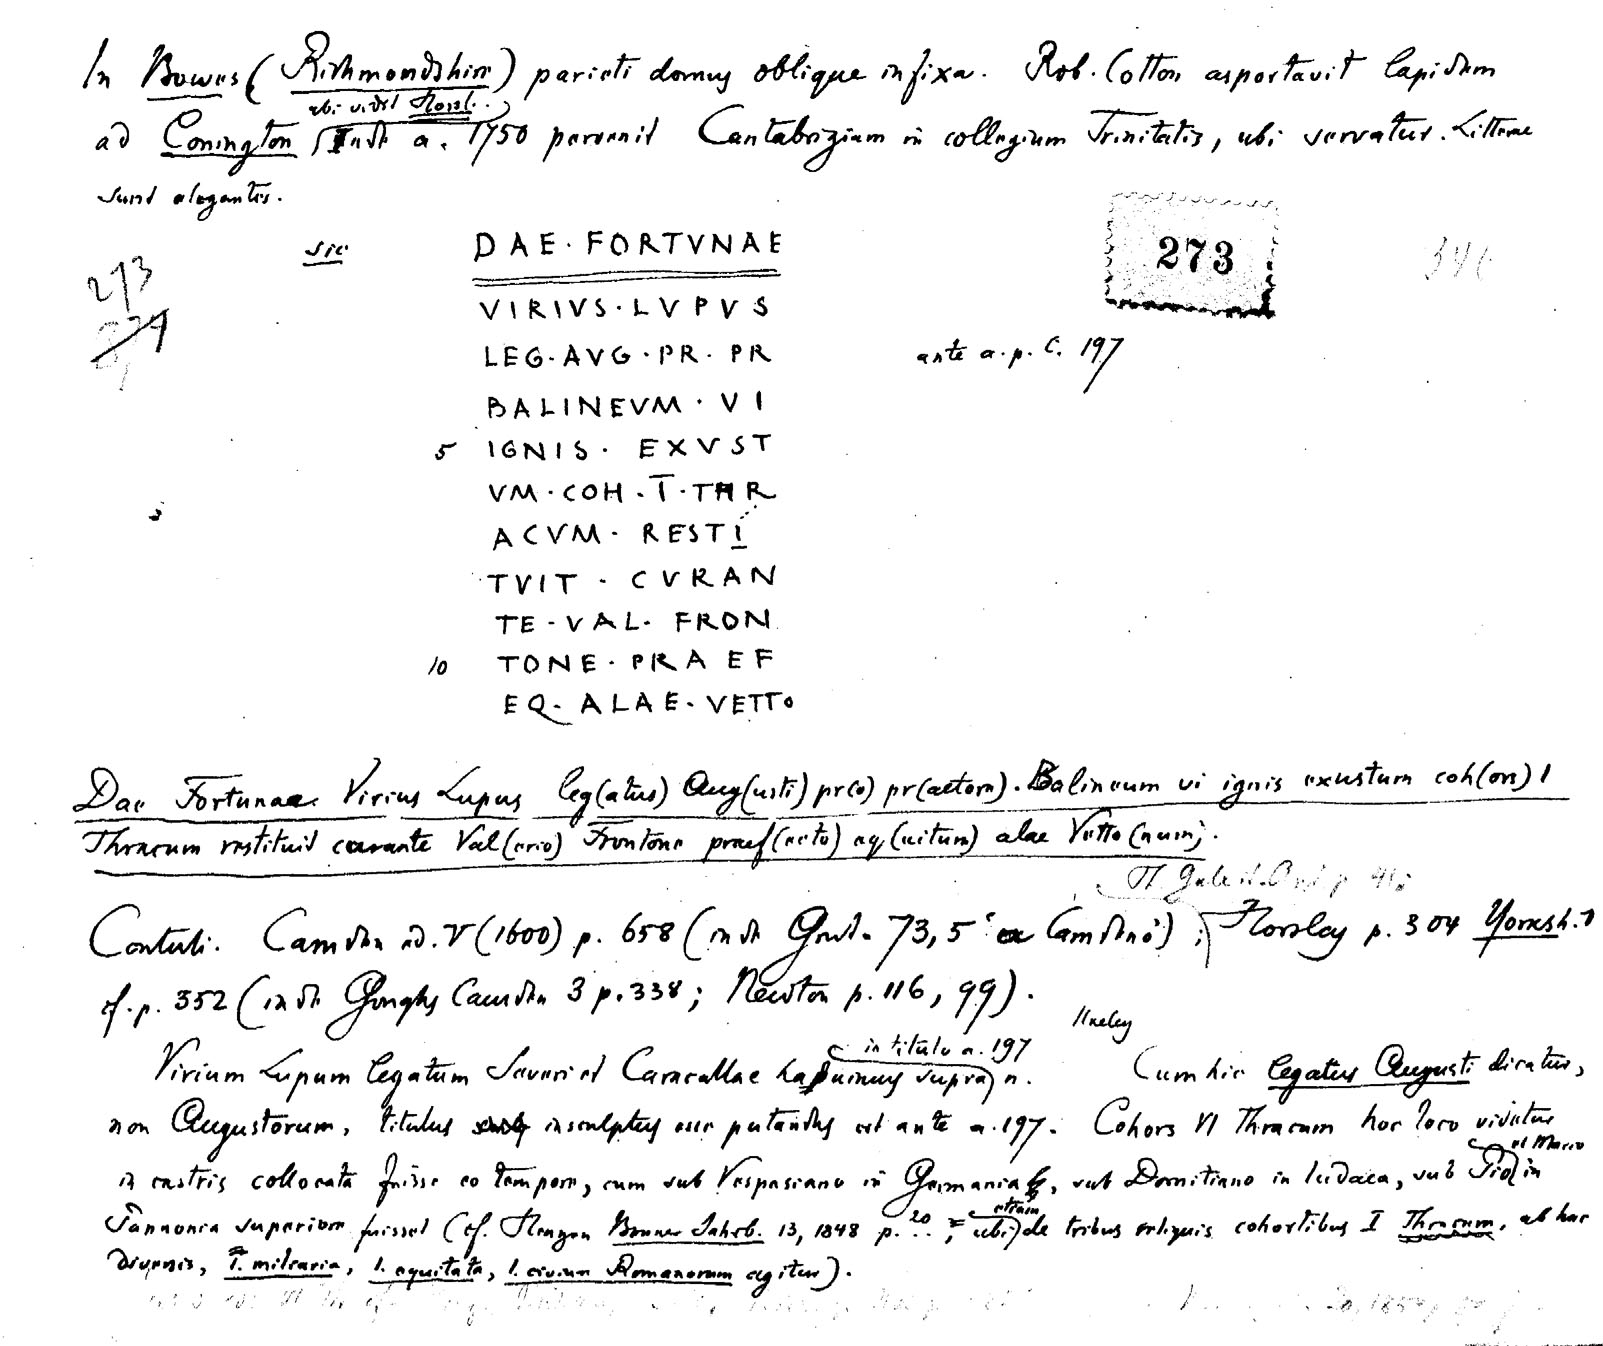 In Bowes (Richmondshire) parieti domus oblique infixa. Rob. Cotton asportavit lapidem
ubi vidit Horsl.
ad Conington, inde a. 1750 pervenit Cantabrigiam in collegium Trinitatis, ubi servatur. Litterae
sunt elegantes.
sic DAE · FORTVNAE
273
346
273
VIRIVS · LVPVS
LEG · AVG · PR · PR ante a. p. C. 197
BALINEVM · VI
5 IGNIS · EXVST
VM · COH · I · THR
ACVM · RESTI
TVIT · CVRAN
TE · VAL · FRON
10 TONE · PRAEF
EQ · ALAE · VETTO
Dae Fortunae Virius Lupus leg(atus) Aug(usti) pr(o) pr(aetore). Balineum vi ignis exustum coh(ors) I
Thracum restituit curante Val(erio) Frontone praef(ecto) eq(uitum) alae Vetto(num).
Th. Gale
Contuli. Camden ed. V (1600) p. 658 (inde Grut. 73, 5 'ex Camdeno'); Horsley p. 304 Yorksh. 1
cf. p. 352 (inde Goughs Camden 3 p. 338; Newton p. 116, 99).
Ilkeley
in titulo a. 197
Virium Lupum legatum Severi et Caracallae habuimus supra n. Cum hic legatus Augusti dicatur,
non Augustorum, titulus insculptus esse putandus est ante a. 197. Cohors VI Thracum hoc loco videtur
et Marco
in castris collocata fuisse eo tempore, cum sub Vespasiano in Germania, sub Domitiano in Iudaea, sub Pio in
etiam
Pannonia superiore fuisset (cf. Henzen Bonner Jahrb. 13, 1848 p. 20 ; ubi de tribus reliquis cohortibus I Thracum, ab hac
diversis, I. milraria, I. equitata, I. civium Romanorum agitur).